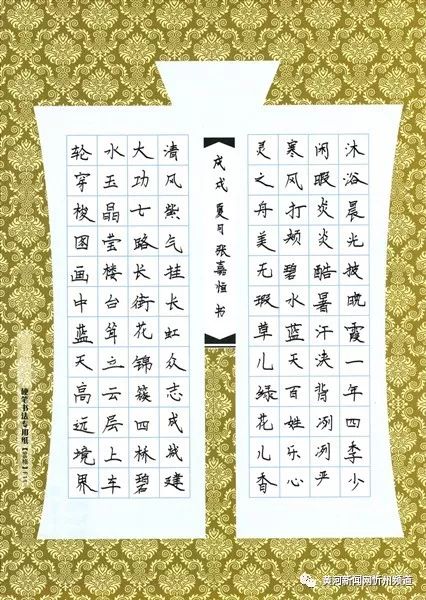 沐浴晨光披晚霞一年四季少
闲暇炎炎酷暑汗浃背冽冽严
寒风打颊碧水蓝天百姓乐心
灵之舟美无瑕草儿绿花儿香
戊戌夏月张嘉恒书
清风紫气挂长虹众志成城建
大功七路长街花锦簇四林碧
水玉晶莹楼台耸立云层上车
轮穿梭图画中蓝天高远境界
硬笔书法专用纸
黄河新闻网忻州频道